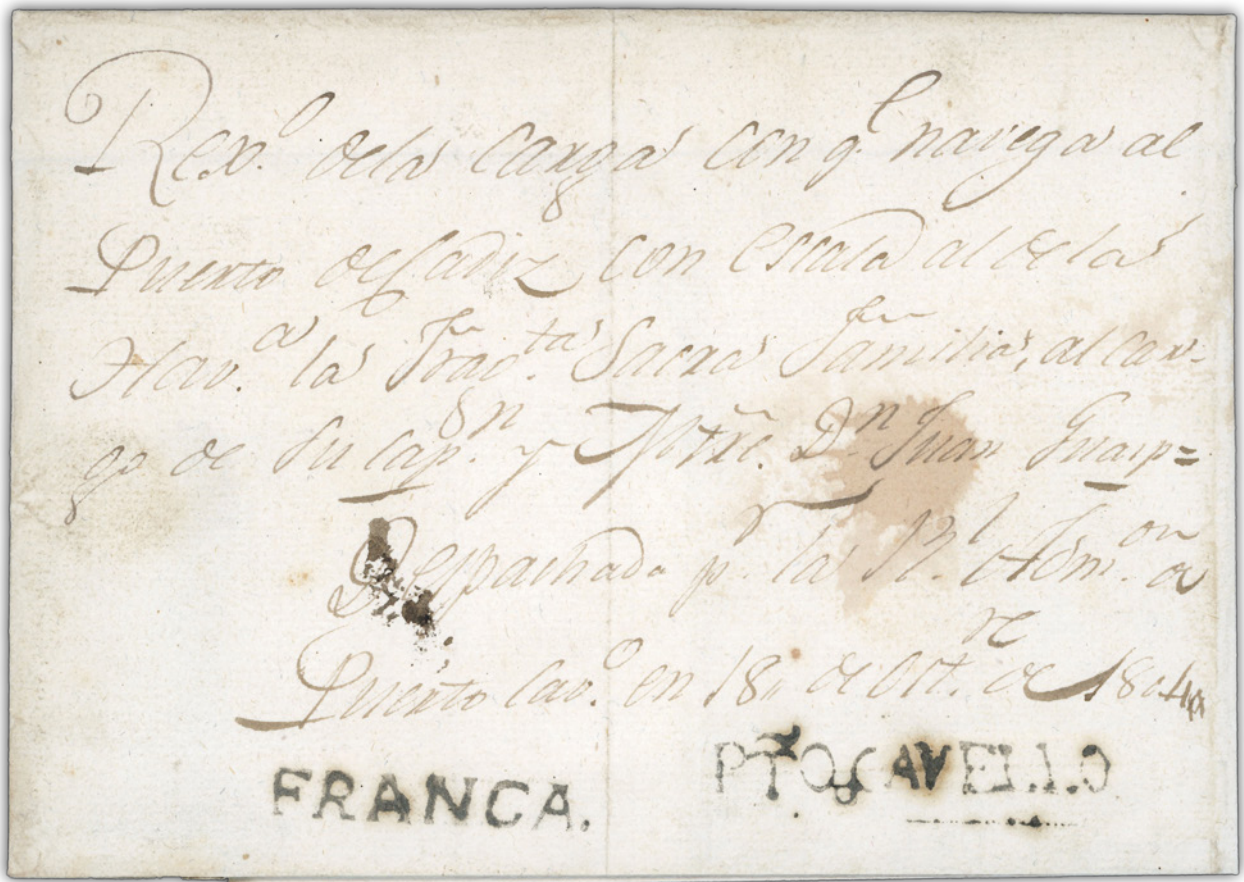 Rexº. dela carga con q.e navega al
Puerto de Cadiz con escala al de la
Hav.a la Frag.ta Sacra Familia, al car-
go de su cap.n y Mtre. D.n Juan Guasp=
Despachada p.r la R.l Adm.on de
Puerto Cavº. en 18, de Oct.re de 1804
FRANCA. PTO, CAVELLO